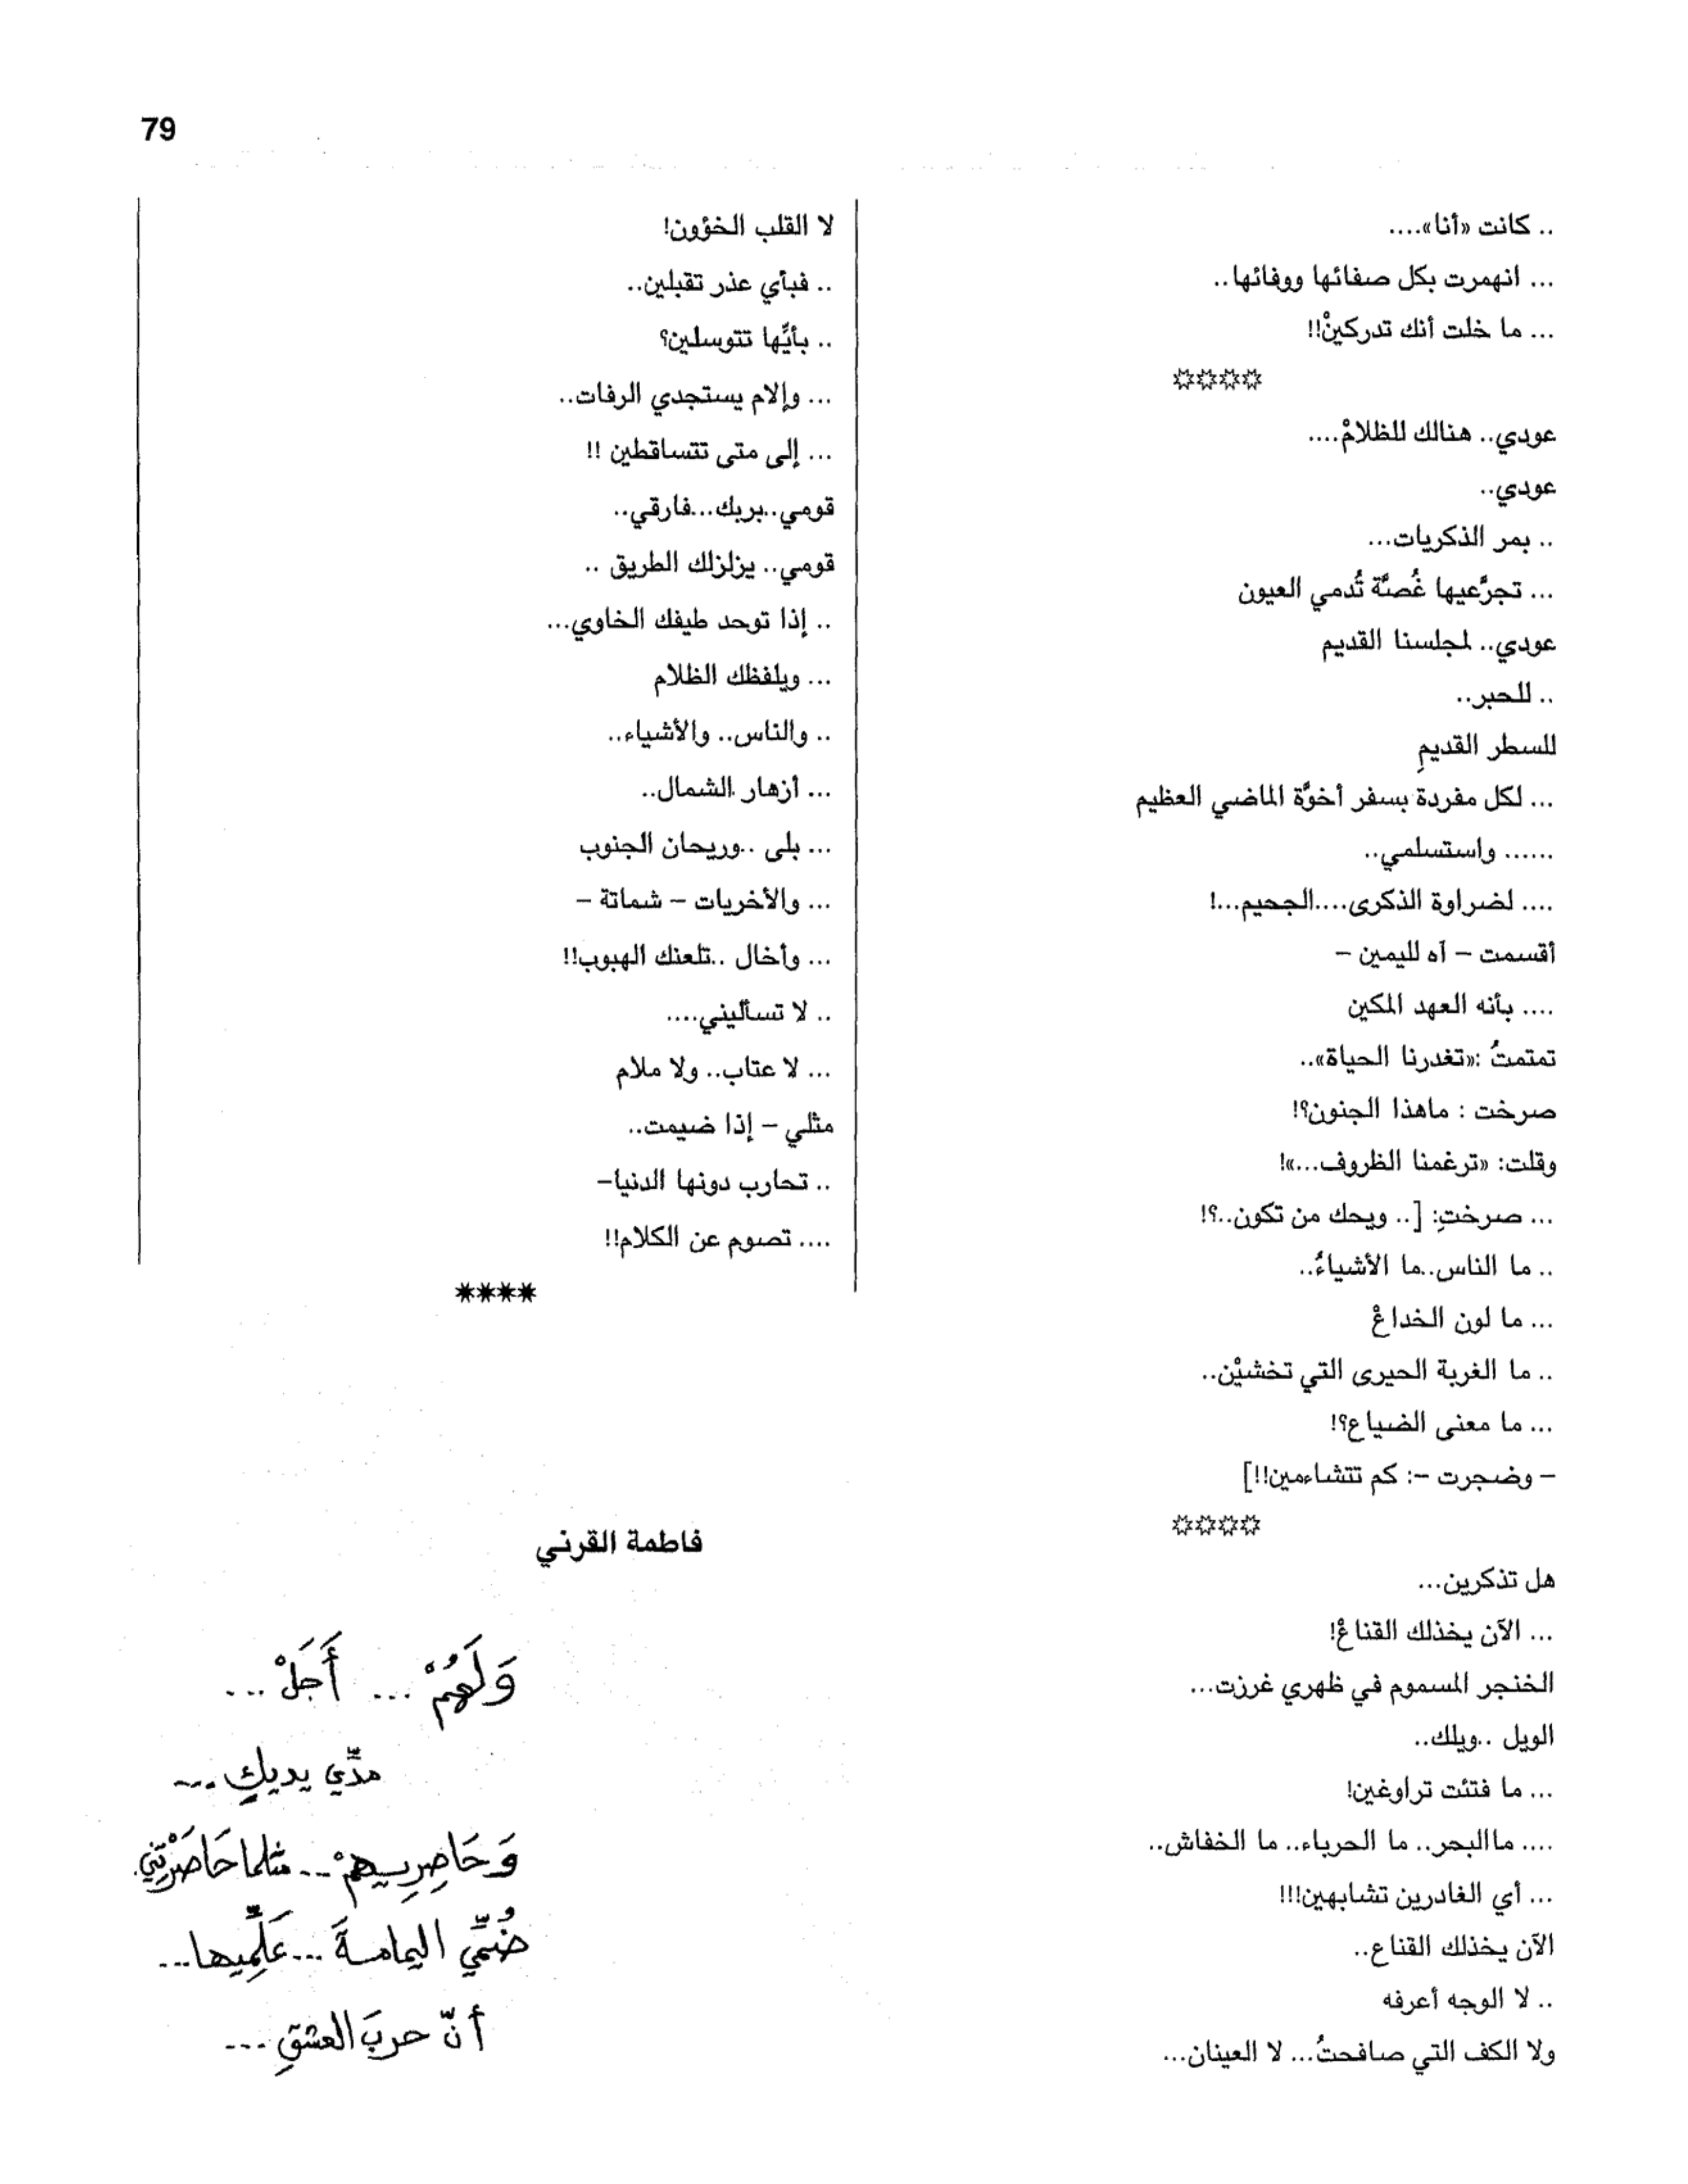 79
.. كانت «أنا»....
... انهمرت بكل صفائها ووفائها..
... ما خلت أنك تدركينْ!!
☼☼☼☼
عودي.. هنالك للظلامْ....
عودي..
.. بمر الذكريات...
... تجرَّعيها غُصَّة تُدمي العيون
عودي.. لمجلسنا القديم
.. للحبر..
للسطر القديمِ
... لكل مفردة بسفر أخوَّة الماضي العظيم
...... واستسلمي..
.... لضراوة الذكرى....الجحيم...!
أقسمت – آه لليمين –
.... بأنه العهد المكين
تمتمتُ :«تغدرنا الحياة»..
صرخت : ماهذا الجنون؟!
وقلت: «ترغمنا الظروف...»!
... صرختِ: [.. ويحك من تكون..؟!
.. ما الناس..ما الأشياءُ..
... ما لون الخداعْ
.. ما الغربة الحيرى التي تخشيْن..
... ما معنى الضياع؟!
– وضجرت –: كم تتشاءمين!!]
☼☼☼☼
هل تذكرين...
... الآن يخذلك القناعْ!
الخنجر المسموم في ظهري غرزت...
الويل ..ويلك..
... ما فتئت تراوغين!
.... ماالبحر.. ما الحرباء.. ما الخفاش..
... أي الغادرين تشابهين!!!
الآن يخذلك القناع..
.. لا الوجه أعرفه
ولا الكف التي صافحتُ... لا العينان...
لا القلب الخؤون!
.. فبأي عذر تقبلين..
.. بأيِّها تتوسلين؟
... وإلام يستجدي الرفات..
... إلى متى تتساقطين !!
قومي..بربك...فارقي..
قومي.. يزلزلك الطريق ..
.. إذا توحد طيفك الخاوي...
... ويلفظك الظلام
.. والناس.. والأشياء..
... أزهار الشمال..
... بلى ..وريحان الجنوب
... والأخريات – شماتة –
... وأخال ..تلعنك الهبوب!!
.. لا تسأليني....
... لا عتاب.. ولا ملام
مثلي – إذا ضيمت..
.. تحارب دونها الدنيا–
.... تصوم عن الكلام!!
✷✷✷✷
فاطمة القرني
وَلَهُمْ ... أَجَلْ ...
مدِّي يديكِ ...
وَحَاصِرِيهمْ ... مثلما حَاصَرْتِنِي.
ضُمِّي اليمامةَ ... عَلِّمِيها...
أنّ حربَ العشقِ ...